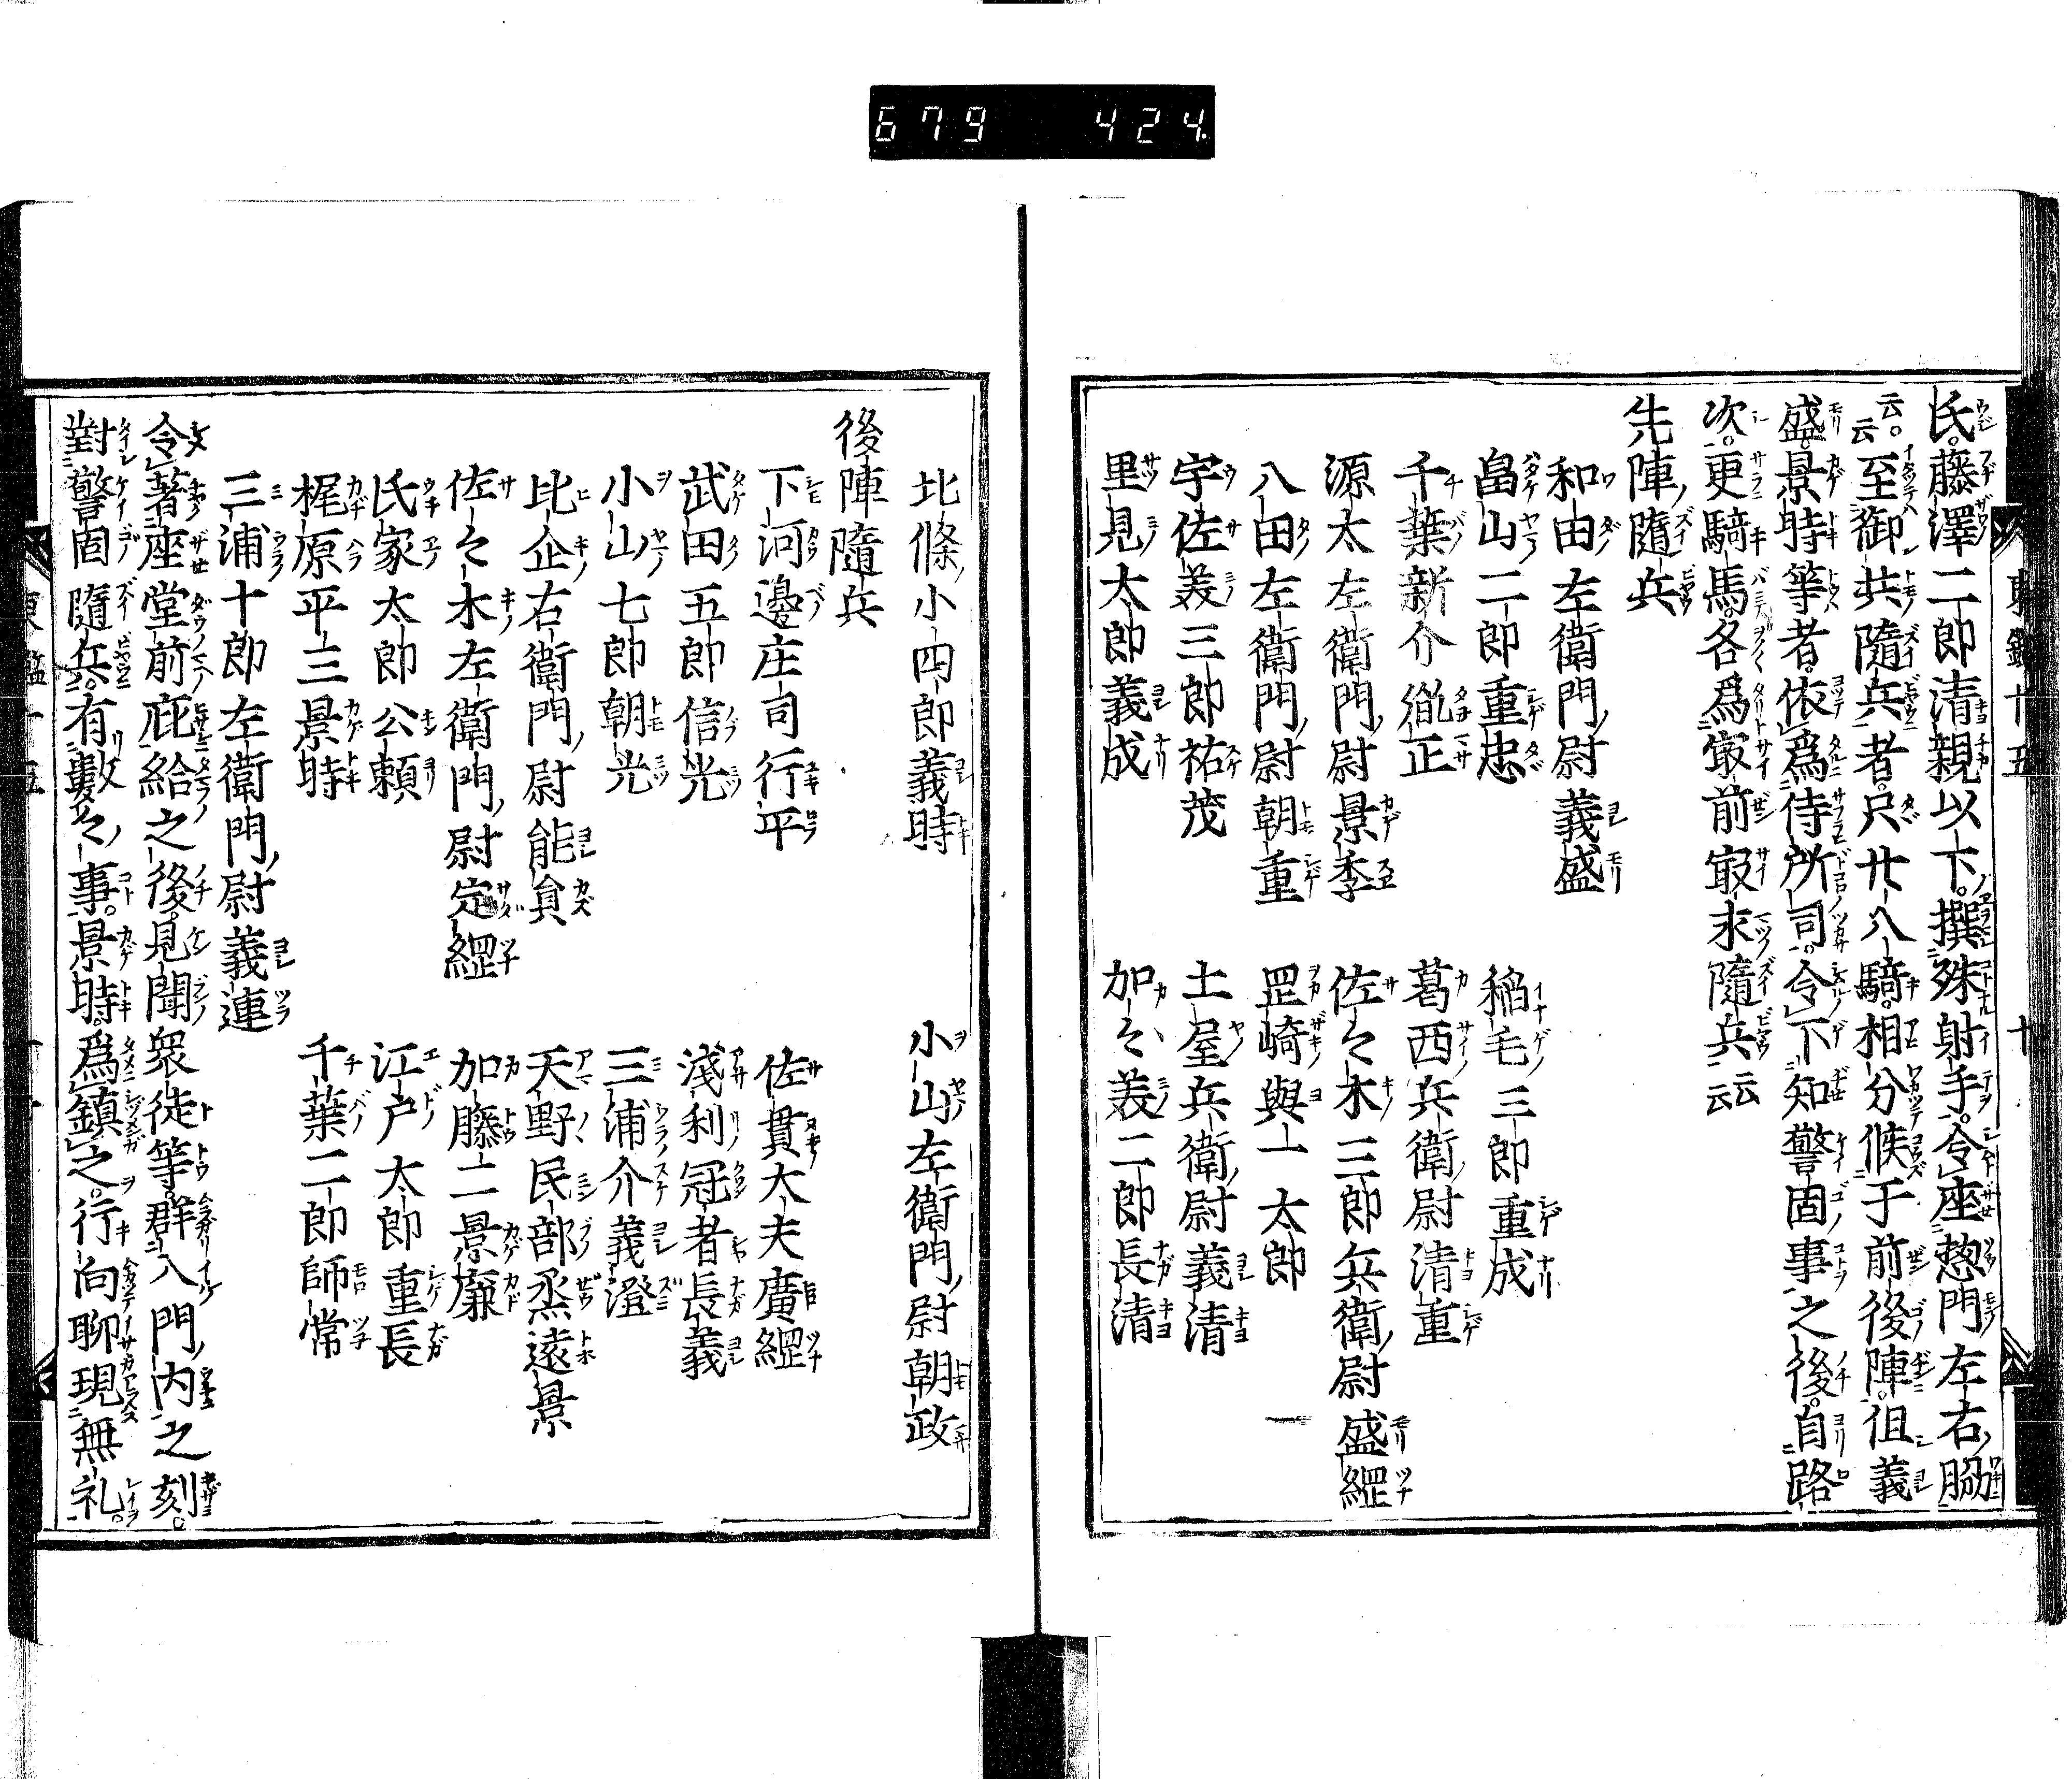 679 424
東鑑十五 十
氏。藤澤二郎清親以下。撰殊射手。令座惣門左右脇
云云。至御共隨兵者。只廿八騎。相分候于前後陣。但義
盛。景時等者。依爲侍所司。令下知警固事之後。自路
次。更騎馬各爲㝡前㝡末隨兵云云
先陣隨兵
和田左衛門尉義盛
畠山二郎重忠 稲毛三郎重成
千葉新介胤正 葛西兵衛尉清重
源太左衛門尉景季 佐々木三郎兵衛尉盛綱
八田左衛門尉朝重 罡崎與一太郎
宇佐美三郎祐茂 土屋兵衛尉義清
里見太郎義成 加々美二郎長清
北條小四郎義時 小山左衛門尉朝政
後陣隨兵
下河邊庄司行平 佐貫大夫廣綱
武田五郎信光 淺利冠者長義
小山七郎朝光 三浦介義澄
比企右衛門尉能員 天野民部烝遠景
佐々木左衛門尉定綱 加藤二景廉
氏家太郎公頼 江戸太郎重長
梶原平三景時 千葉二郎師常
三浦十郎左衛門尉義連
令著座堂前庇給之後。見聞衆徒等。群入門内之刻。
對警固隨兵。有數々事。景時。爲鎮之。行向聊現無礼。